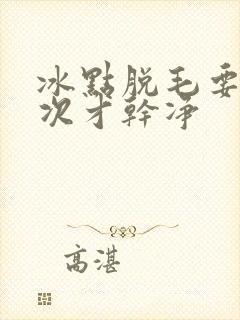 冰點脫毛要
次才幹净
高湛